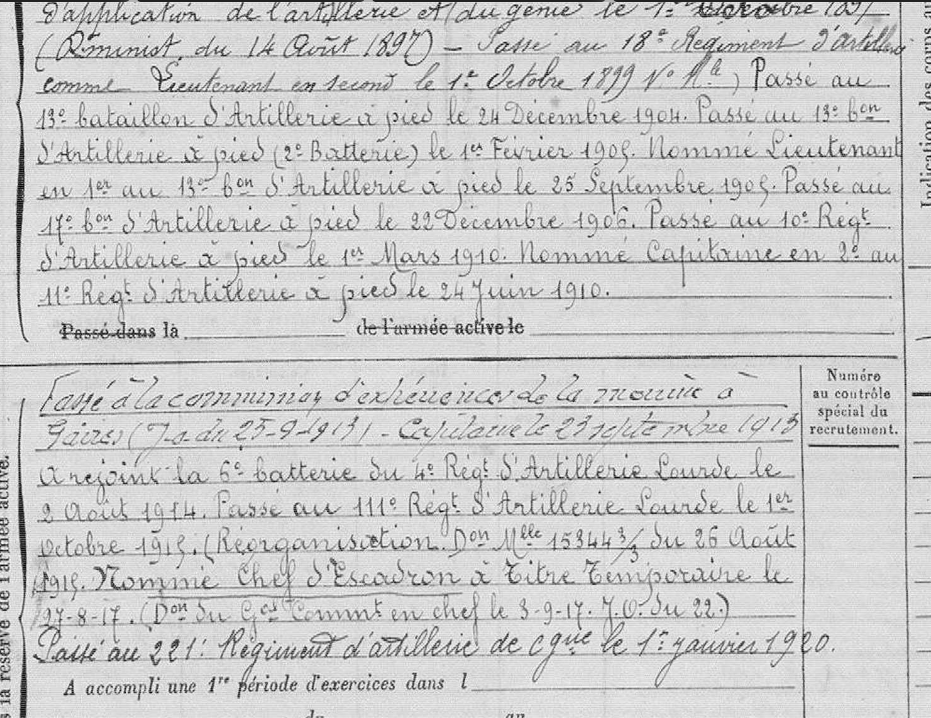 d'application de l'artillerie et du génie le 1er Octobre 1897
(D. minist. du 14 Août 1897) – Passé au 18e Régiment d'Artillerie
comme Lieutenant en second le 1er Octobre 1899 No Mle) Passé au
13e bataillon d'Artillerie à pied le 24 Décembre 1904. Passé au 13e bon
d'Artillerie à pied (2e Batterie) le 1er Février 1905. Nommé Lieutenant
en 1er au 13e bon d'Artillerie à pied le 25 Septembre 1905. Passé au
17e bon d'Artillerie à pied le 22 Décembre 1906. Passé au 10e Régt
d'Artillerie à pied le 1er Mars 1910. Nommé Capitaine en 2e au
11e Régt d'Artillerie à pied le 24 Juin 1910.
Passé dans la de l'armée active le
Passé à la commission d'expériences de la marine à
Gâvres (J.O. du 25-9-1913) – Capitaine le 23 septembre 1913
A rejoint la 6e batterie du 4e Régt d'Artillerie Lourde le
2 Août 1914. Passé au 111e Régt d'Artillerie Lourde le 1er
Octobre 1915. (Réorganisation. Don Mlle 15344 3/3 du 26 Août
1915. Nommé Chef d'Escadron à Titre Temporaire le
27-8-17. (Don du Gal Commt en chef le 3-9-17. J.O. du 22.)
Passé au 221e Régiment d'artillerie de cgne le 1er janvier 1920.
A accompli une 1re période d'exercices dans l
du au
Numéro
au contrôle
spécial du
recrutement.
Indication des corps au
s la réserve de l'armée active.